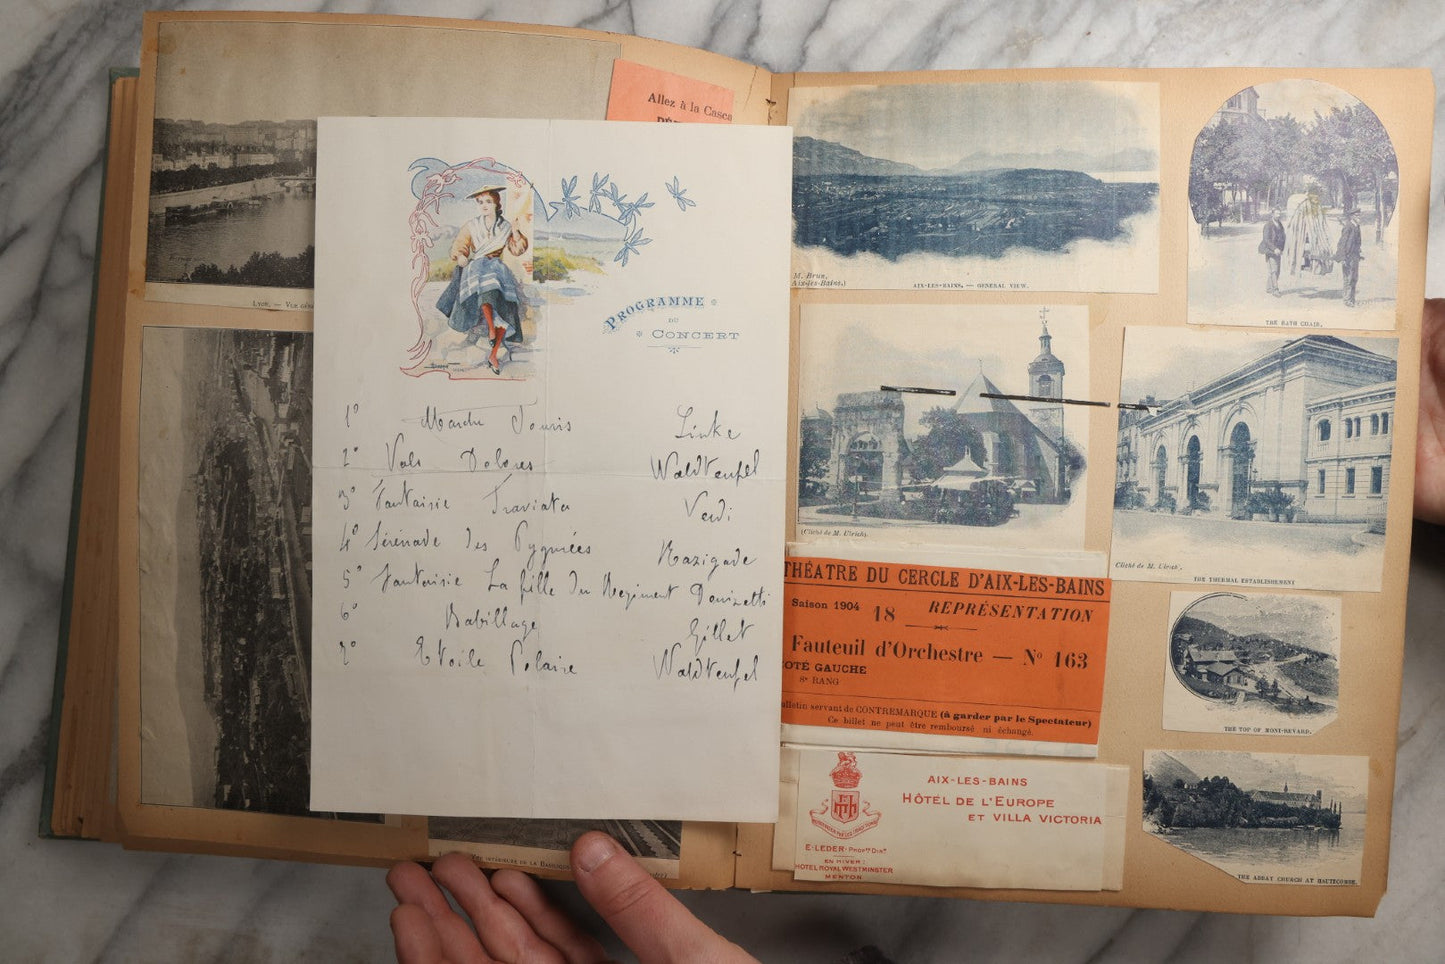 Allez à la Casca
LYON. — VUE GÉN
PROGRAMME
DU
CONCERT
1° Marche Linke
2° Vals Dolores Waldteufel
3° Fantaisie Traviata Verdi
4° Sérénade des Pygmées Razigade
5° Fantaisie La fille du Regiment Donizetti
6° Babillage Gillet
7° Etoile Polaire Waldteufel
VUE INTÉRIEURE DE LA BASILIQUE
M. Brun,
Aix-les-Bains.)
AIX-LES-BAINS. — GENERAL VIEW.
THE BATH CHAIR.
(Cliché de M. Ulrich).
Cliché de M. Ulrich.
THE THERMAL ESTABLISHEMENT
THÉATRE DU CERCLE D'AIX-LES-BAINS
Saison 1904 18 REPRÉSENTATION
Fauteuil d'Orchestre — N° 163
OTÉ GAUCHE
8e RANG
lletin servant de CONTREMARQUE (à garder par le Spectateur)
Ce billet ne peut être remboursé ni échangé.
THE TOP OF MONT-REVARD.
AIX-LES-BAINS
HÔTEL DE L'EUROPE
ET VILLA VICTORIA
E. LEDER. PROPre DIRr
EN HIVER:
HOTEL ROYAL WESTMINSTER
MENTON
THE ABBAY CHURCH AT HAUTECOMBE.